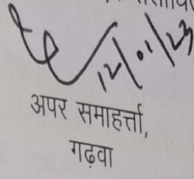 12/01/23
अपर समाहर्त्ता,
गढ़वा